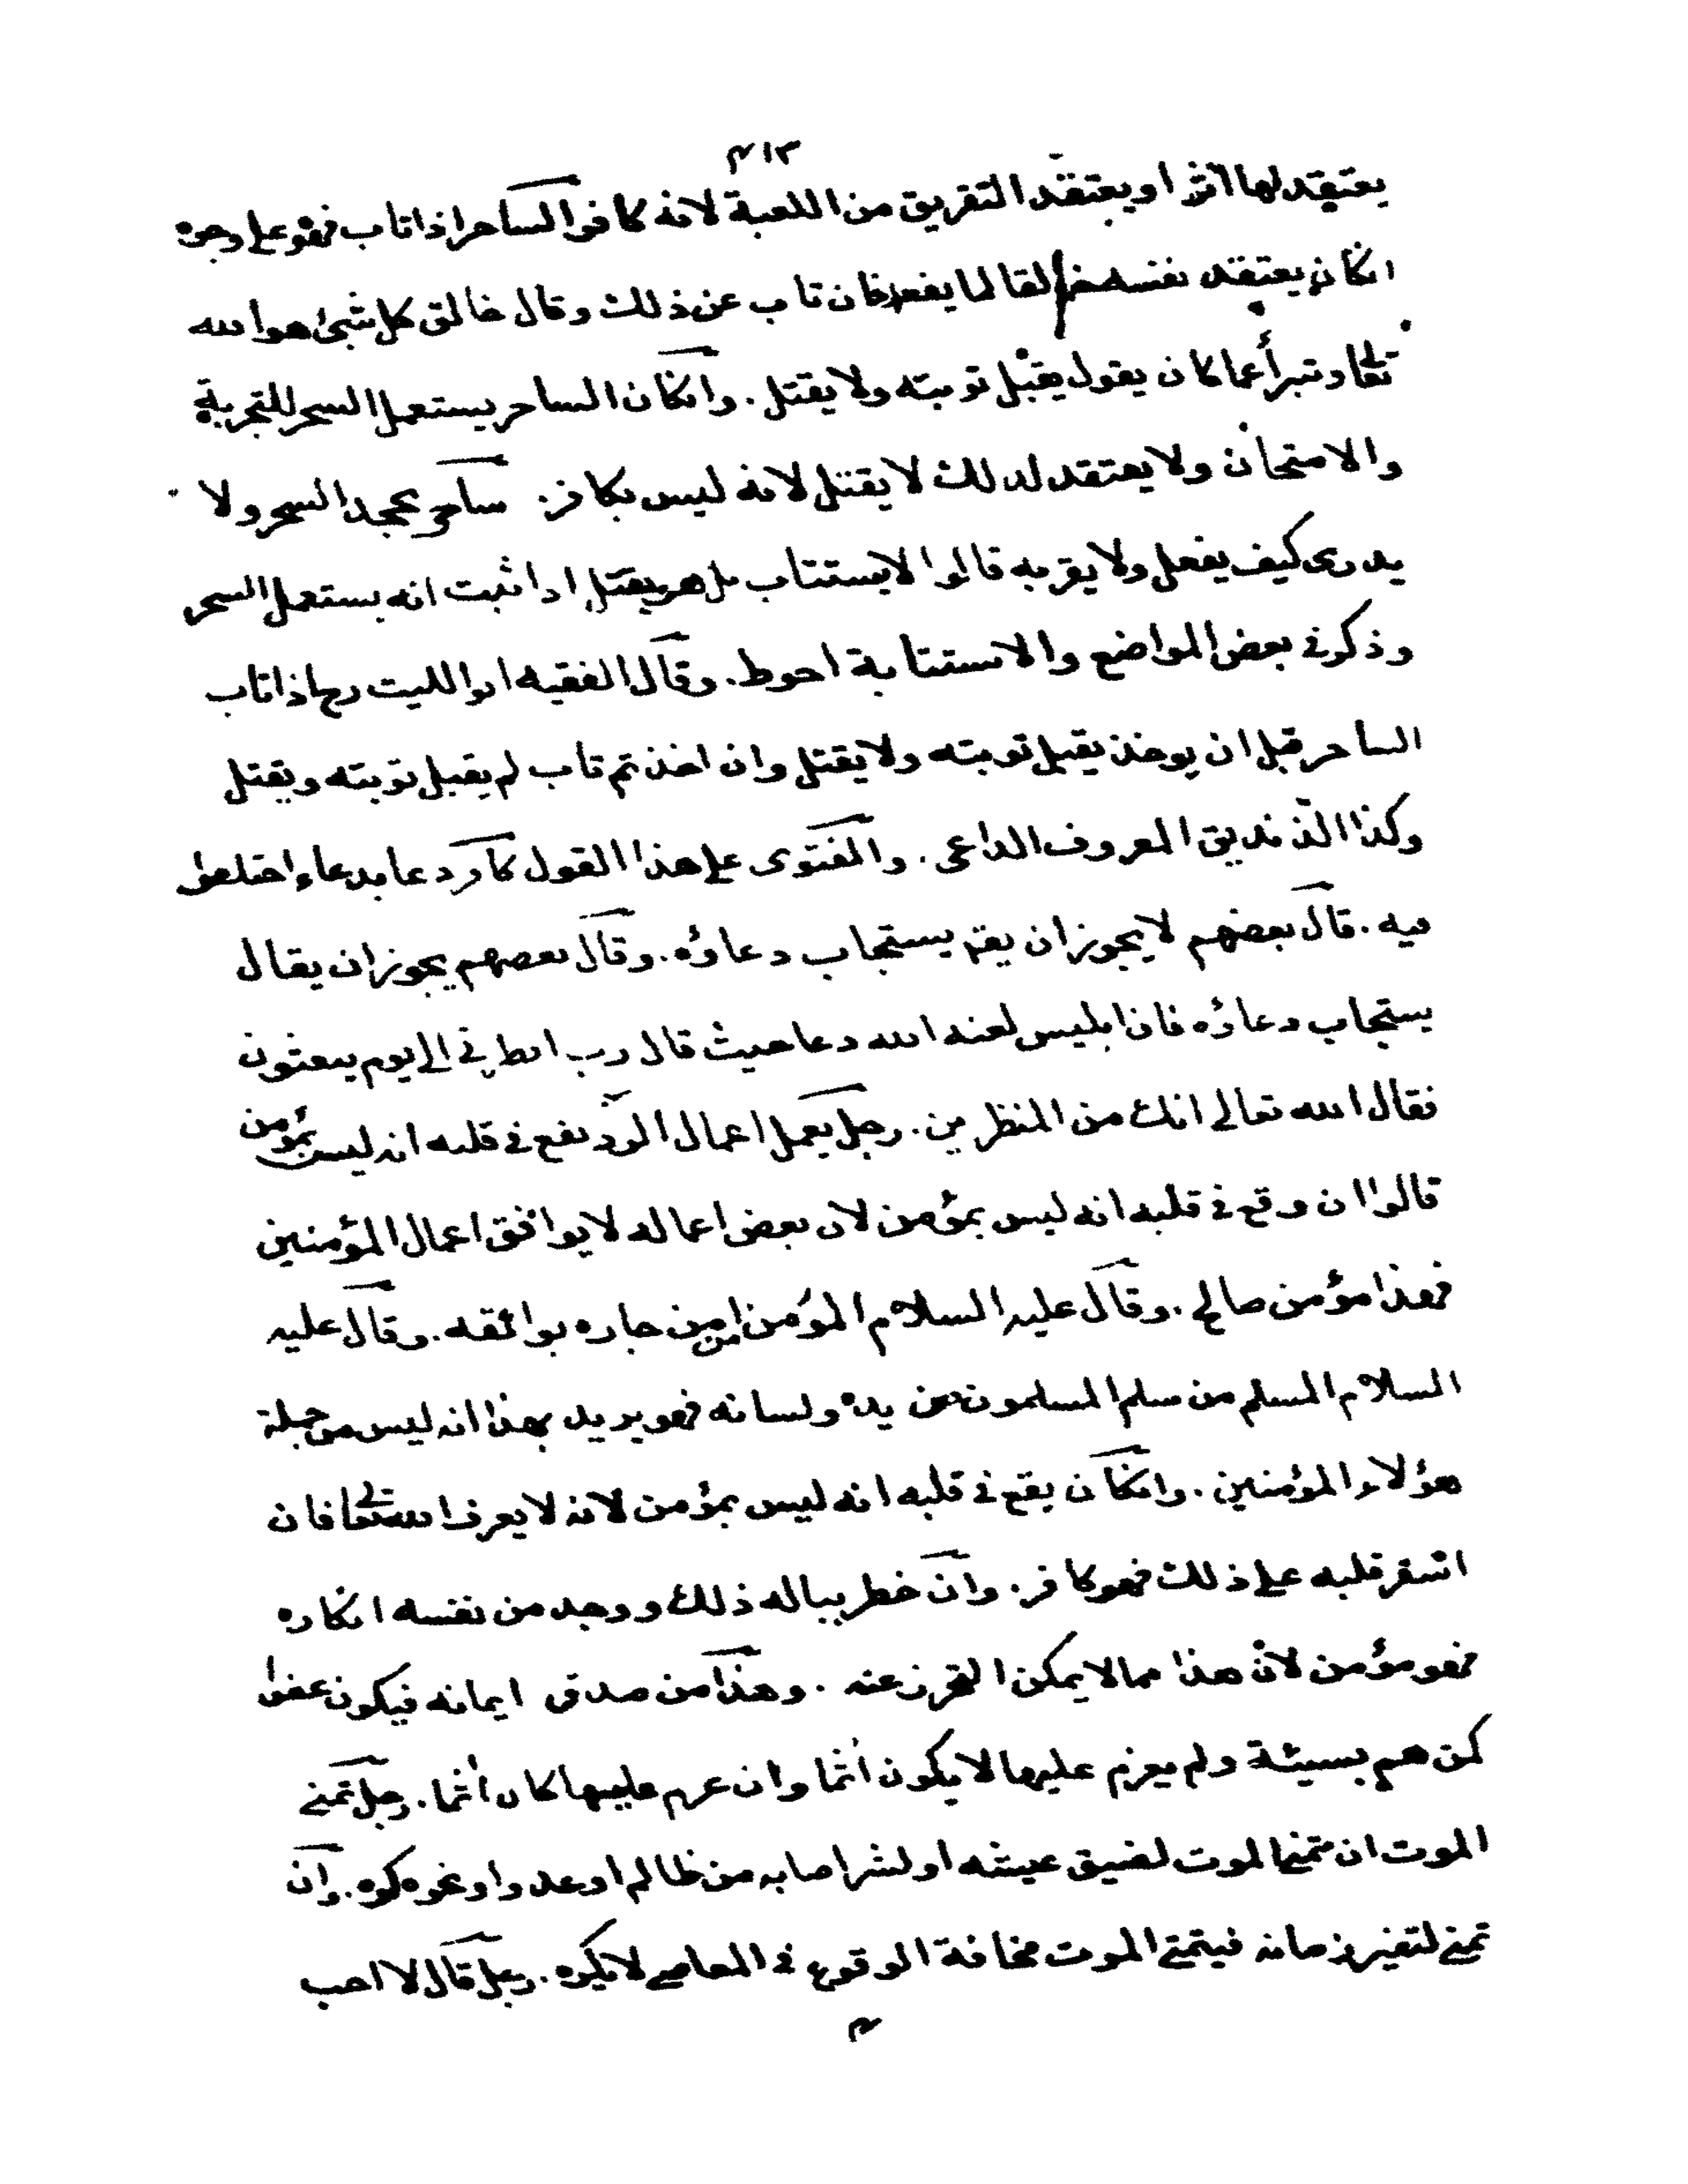 ٣١٢
يعتقد لها اثرا او يعتقد التفريق من اللعبة لانه كافر الساحر اذا تاب فهو على وجوه
انكان يعتقد نفسه خالقا لما يفعل فان تاب عن ذلك وقال خالق كل شئ هو الله
تعالى وتبرأ عما كان يقول يقبل توبته ولا يقتل. وانكان الساحر يستعمل السحر للتجربة
والامتحان ولا يعتقد لذلك لا يقتل لانه ليس بكافر. ساحر يجحد السحر ولا
يدرى كيف يفعل ولا يقر به قالوا لا يستتاب بل هو يقتل اذا ثبت انه يستعمل السحر
وذكر فى بعض المواضع والاستتابة احوط. وقال الفقيه ابو الليث رح اذا تاب
الساحر قبل ان يوخذ يقبل توبته ولا يقتل وان اخذ ثم تاب لم يقبل توبته ويقتل
وكذا الذنديق المعروف الداعى. والفتوى على هذا القول كافر دعا بدعاء اختلفوا
فيه. قال بعضهم لا يجوز ان يقم يستجاب دعاؤه. وقال بعضهم يجوز ان يقال
يستجاب دعاؤه فان ابليس لعنه الله دعا حيث قال رب انظرنى الى يوم يبعثون
فقال الله تعالى انك من المنظرين. رجل يعمل اعمال البر ويقع فى قلبه انه ليس بمؤمن
قالوا ان وقع فى قلبه انه ليس بمؤمن لان بعض اعماله لا يوافق اعمال المؤمنين
فهذا مؤمن صالح. وقال عليه السلام المؤمن من امن جاره بوائقه. وقال عليه
السلام المسلم من سلم المسلمون من يده ولسانه فهو يريد بهذا انه ليس من جملة
هؤلاء المؤمنين. وانكان يقع فى قلبه انه ليس بمؤمن لانه لا يعرف الله تعالى فان
استقر قلبه على ذلك فهو كافر. وان خطر بباله ذلك ووجد من نفسه انكاره
فهو مؤمن لان هذا مما لا يمكن التحرز عنه. وهذا من صدق ايمانه فيكون عفوا
كمن هم بسيئة ولم يعزم عليها لا يكون اثما وان عزم عليها كان اثما. رجل تمنى
الموت ان تمنى الموت لضيق عيشه او لشر اصابه من ظالم او عدو او نحوه كره. وان
تمنى لتغير زمانه فيتمنى الموت مخافة الوقوع فى المعاصى لا يكره. رجل قال لا احب